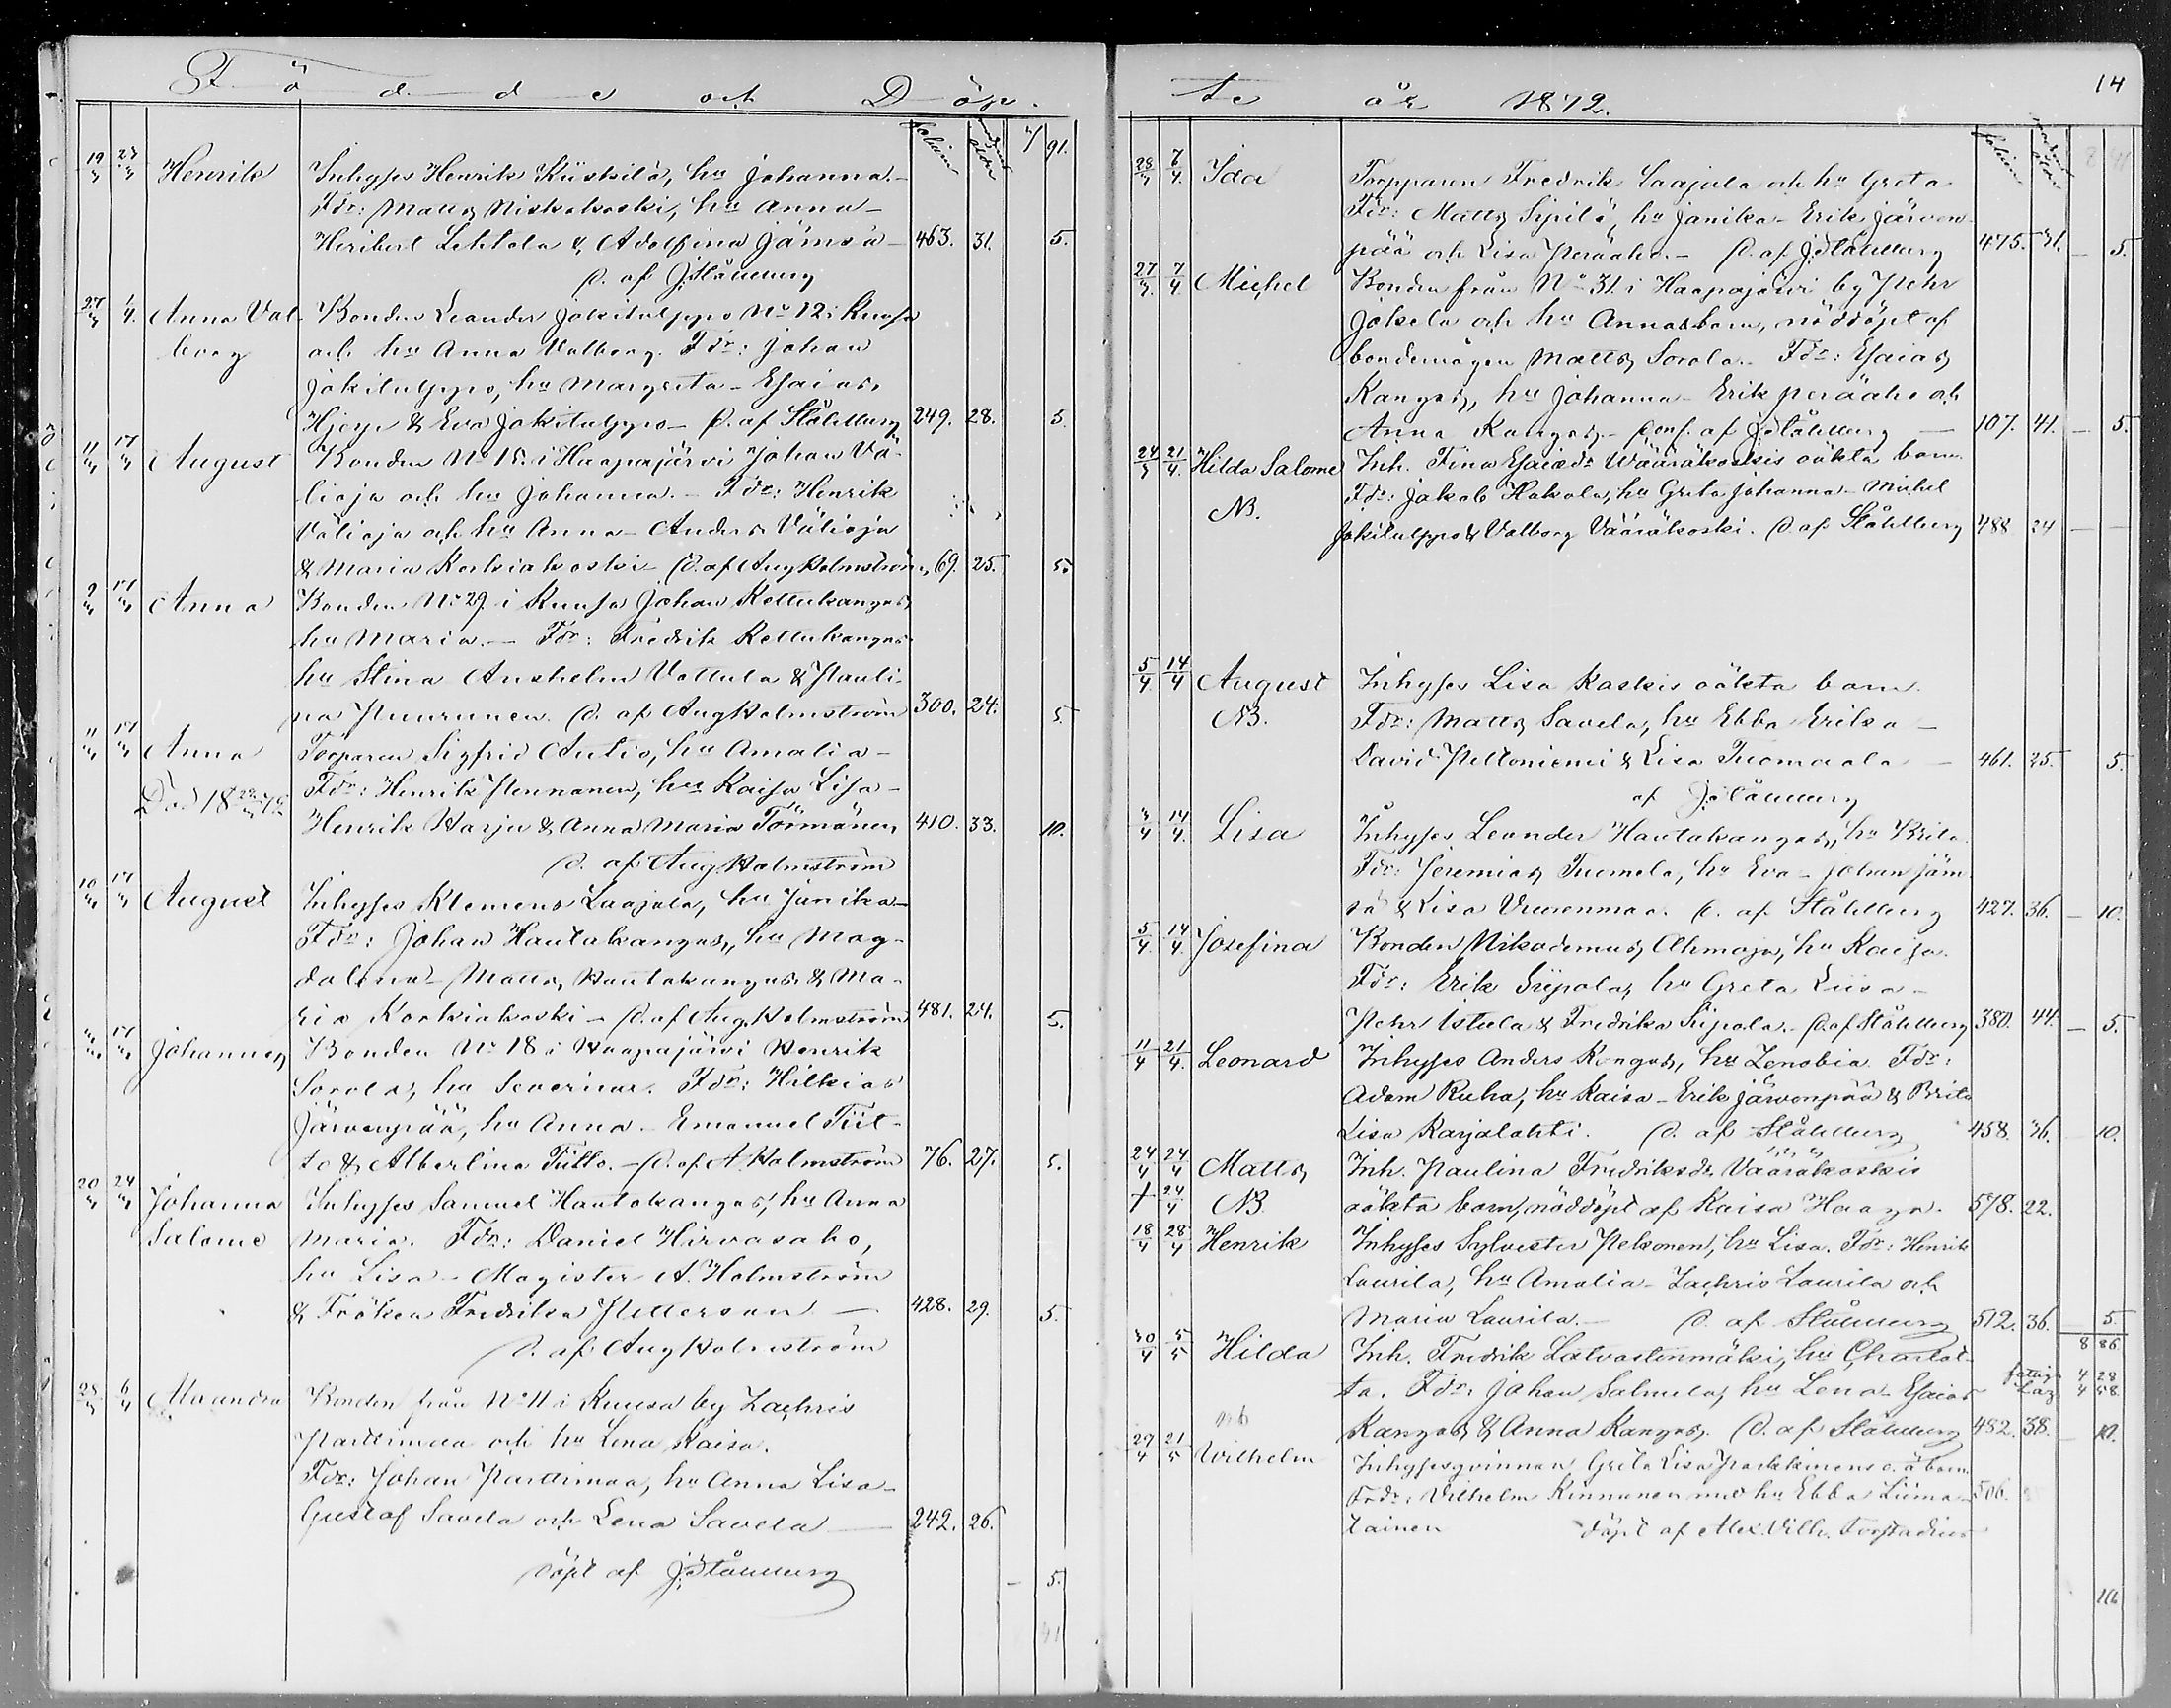 Födde och Döp-
folium moderns ålder 7 91.
19/3 23/3 Henrik Inhyses Henrik Kiiskilä, hu Johanna.
Fdr: Matts Niskakoski, hu Anna –
Heribert Lehtola & Adolfina Jämsä – 463. 31. 5.
D. af J. Ståhlberg
27/3 1/4 Anna Val- Bonden Leander Jokitulppo No 12 i Kuusa
borg och hu Anna Valborg. Fdr: Johan
Jokitulppo, hu Margreta – Esaias
& Eva Jokitulppo – D. af Ståhlberg 249. 28. 5.
11/3 17/3 August Bonden No 15. i Haapajärvi Johan Vä-
lioja och hu Johanna. – Fdr: Henrik
Välioja och hu Anna – Anders Välioja
& Maria Korkiakoski – D. af Aug Holmström 69. 25. 5.
9/3 17/3 Anna Bonden No 29 i Kuusa Johan Kettukangas,
hu Maria. – Fdr: Fredrik Kettukangas
hu Stina Anshelm Vattula & Pauli-
na Puurunen. D. af Aug Holmström 300. 24. 5.
11/3 17/3 Anna Torparen Sigfrid Autio, hu Amalia –
Död 18 Fdr: Henrik Pennanen, hu Kaisa Lisa –
Henrik Harju & Anna Maria Törmänen 410. 33. 10.
D. af Aug. Holmström
10/3 17/3 August Inhyses Klemens Laajala, hu Janika –
Fdr: Johan Hautakangas, hu Mag-
dalena – Matts Hautakangas & Ma-
ria Korkiakoski – D. af Aug. Holmström 481. 24. 5.
17/3 Johannes Bonden No 18 i Haapajärvi Henrik
Sorola, hu Severina. Fdr: Hilkias
Järvenpää, hu Anna. – Emanuel Tiit-
to & Albertina Tiitto. – D. af A. Holmström 76. 27. 5.
20/3 24/3 Johanna Inhyses Samuel Hautakangas, hu Anna
Salome Maria. Fdr: Daniel Hirvasaho,
hu Lisa – Magister A. Holmström
& Fröken Fredrika Petterson – 428. 29. 5.
D. af Aug Holmström
28/3 6/4 Maandra Bonden från No 11 i Kuusa by Zachris
Parttimaa och hu Lena Kaisa.
Fdr: Johan Parttimaa, hu Anna Lisa –
Gustaf Savela och Lena Savela – 242. 26.
döpt af J. Ståhlberg – 5.
41
te år 1872. 14
folium moderns ålder
28/3 7/4 Ida Torpparen Fredrik Laajala och hu Greta
Fdr: Matts Sipilä, hu Janika – Erik Järven-
pää och Lisa Peräaho. – D. af J. Ståhlberg 475. 31. – 5.
27/3 7/4 Michel Bonden från No 31. i Haapajärvi by Pehr
Jokela och hu Annas barn, nöddöpt af
bondemågen Matts Sorola. – Fdr: Esaias
Kangas, hu Johanna – Erik Peräaho och
Anna Kangas. – Conf. af J. Ståhlberg – 107. 41. – 5.
24/3 21/4 Hilda Salome Inh. Fina Esaiædr Wääräkoskis oäkta barn
NB. Fdr: Jakob Hakola, hu Greta Johanna – Michel
Jokitulppo & Valborg Vääräkoski. D. af Ståhlberg 488 24 – –
5/4 14/4 August Inhyses Lisa Kaskis oäkta barn.
NB. Fdr: Matts Savela, hu Ebba Erika –
David Peltoniemi & Lisa Tuomaala – 461. 25. 5.
af J. Ståhlberg
3/4 14/4 Lisa Inhyses Leander Hautakangas, hu Brita
Fdr: Jeremias Tuomela, hu Eva – Johan Jäm-
sä & Lisa Vuorenmaa. D. af Ståhlberg 427. 36. – 10.
5/4 14/4 Josefina Bonden Nikodemus Ahmaja, hu Kaisa.
Fdr: Erik Siipola, hu Greta Liisa –
Pehr Uitula & Fredrika Siipola. – D. af Ståhlberg 380. 44. – 5.
11/4 21/4 Leonard Inhyses Anders Kangas, hu Zenobia. Fdr:
Adam Ruha, hu Kaisa – Erik Järvenpää & Brita
Lisa Karjalahti. D. af Ståhlberg 458. 36. 10.
24/4 24/4 Matts Inh. Paulina Fredriksdr Vääräkoskis
† 24/4 NB. oäkta barn, nöddöpt af Kaisa Haapa. 578. 22.
18/4 28/4 Henrik Inhyses Sylvester Pekonen, hu Lisa. Fdr: Henrik
Laurila, hu Amalia – Zachris Laurila och
Maria Laurila. – D. af Ståhlberg 512. 36. 5.
8 86
30/4 5/5 Hilda Inh. Fredrik Latvastenmäki, hu Charlot-
ta. Fdr: Johan Salmela, hu Lena – Esaias 4 28
4 58
Kangas & Anna Kangas. D. af Ståhlberg 482. 38. – 10.
29/4 21/5 Wilhelm Inhysesqvinnan Greta Lisa Parkkinens o. ä barn.
Fdr: Vilhelm Kinnunen med hu Ebba Liima- 506.
tainen döpt af Alex. Vilh. Forstadius